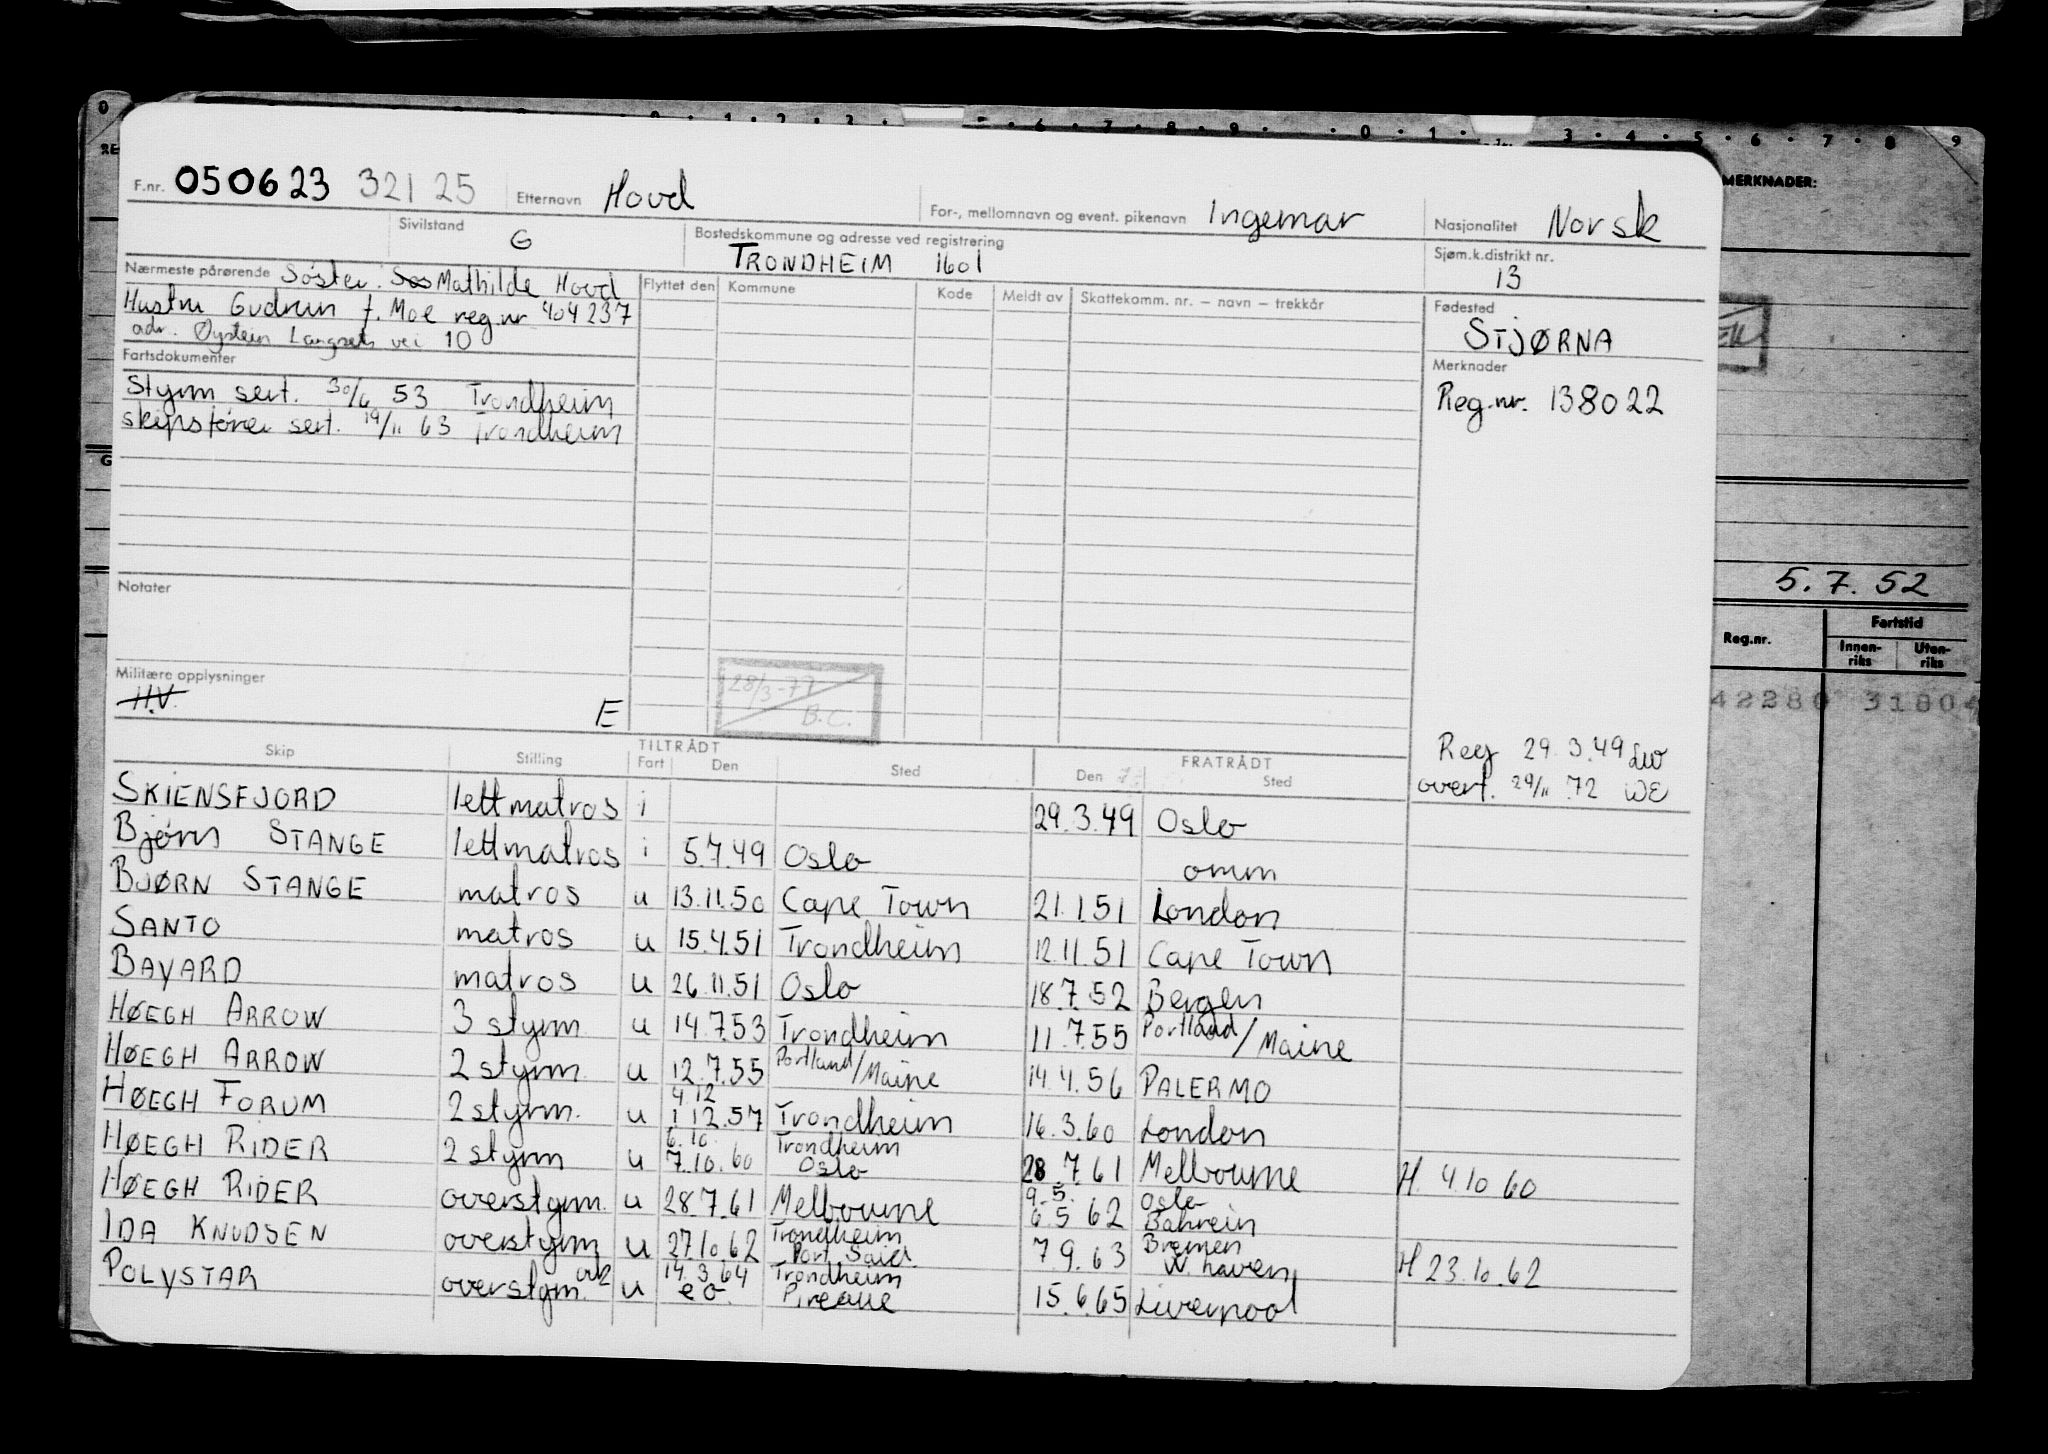 F.nr. 050623 32125 Etternavn Hovd For-, mellomnavn og event. pikenavn Ingemar Nasjonalitet Norsk
Sivilstand G Bostedskommune og adresse ved registrering TRONDHEIM 1601 Sjøm.k.distrikt nr. 13
Nærmeste pårørende Søster: Mathilde Hovd
Hustru Gudrun f. Moe reg.nr 404237
adr. Øystein Langsets vei 10
Flyttet den Kommune Kode Meldt av Skattekomm. nr. – navn – trekkår
Fødested
STJØRNA
Merknader
Reg.nr. 138022
Fartsdokumenter
Styrm sert. 30/6 53 Trondheim
skipsfører sert. 19/11 63 Trondheim
Notater
Militære opplysninger
H.V. E
28/3-77
B.C.
Reg 29.3.49 LW
overf. 29/11 72 WE
Skip Stilling TILTRÅDT Fart Den Sted FRATRÅDT Den Sted
SKIENSFJORD lettmatros i 29.3.49 Oslo
Bjørn STANGE lettmatros i 5.7.49 Oslo omm
BJØRN STANGE matros u 13.11.50 Cape Town 21.1.51 London
SANTO matros u 15.4.51 Trondheim 12.11.51 Cape Town
BAYARD matros u 26.11.51 Oslo 18.7.52 Bergen
HØEGH ARROW 3 styrm u 14.7.53 Trondheim 11.7.55 Portland/Maine
HØEGH ARROW 2 styrm. u 12.7.55 Portland/Maine 14.4.56 PALERMO
HØEGH FORUM 2 styrm. u 4 12 1 12.57 Trondheim 16.3.60 London
HØEGH RIDER 2 styrm u 6.10. 7.10.60 Trondheim Oslo 28.7.61 Melbourne H. 4.10 60
HØEGH RIDER overstyrm. u 28.7.61 Melbourne 9.5. 6.5 62 Oslo Bahrein
IDA KNUDSEN overstyrm u 27.10.62 Trondheim Port Said 7.9.63 Bremen W.haven H 23.10.62
POLYSTAR overstyrm. u 14.3.64 e o. Trondheim Pireaue 15.6.65 Liverpool
MERKNADER:
5.7.52
Reg.nr. Fartstid
Innen-riks Uten-riks
42280 31804